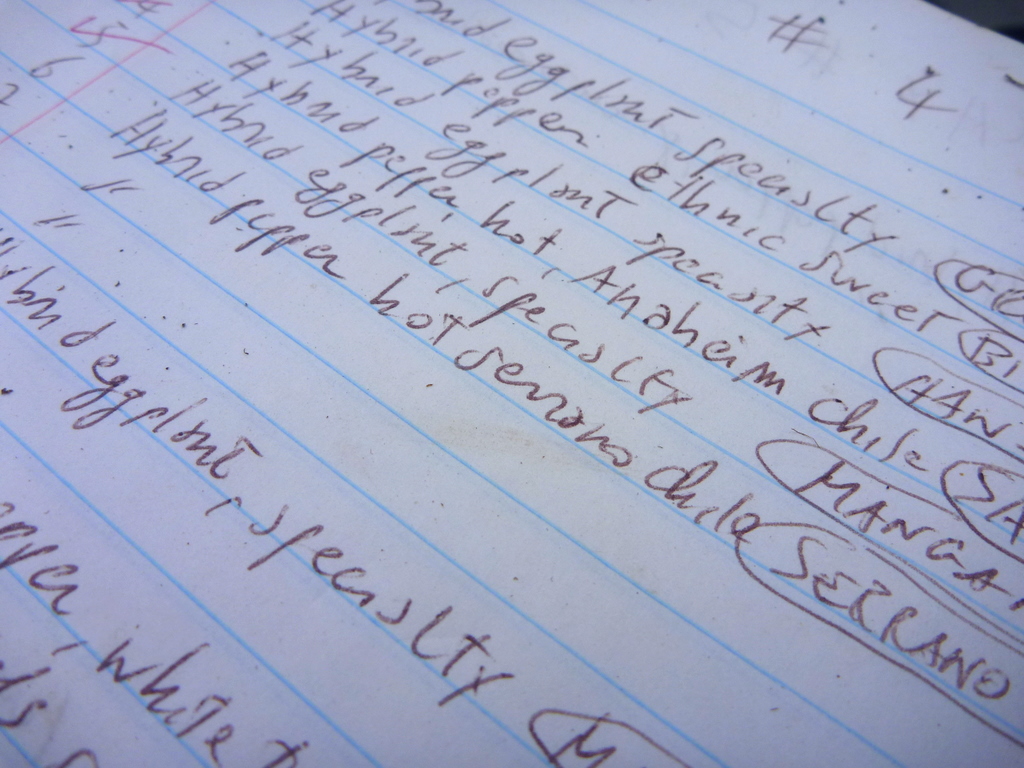 # 4
eggplant specialty
Hybrid pepper ethnic sweet (BI
Hybrid eggplant specialty (HAN
Hybrid pepper hot, Anaheim chile (SA
Hybrid eggplant, specialty (MANGA
Hybrid pepper hot serrano chile (SERRANO
"
"
Hybrid eggplant, specialty (M
white